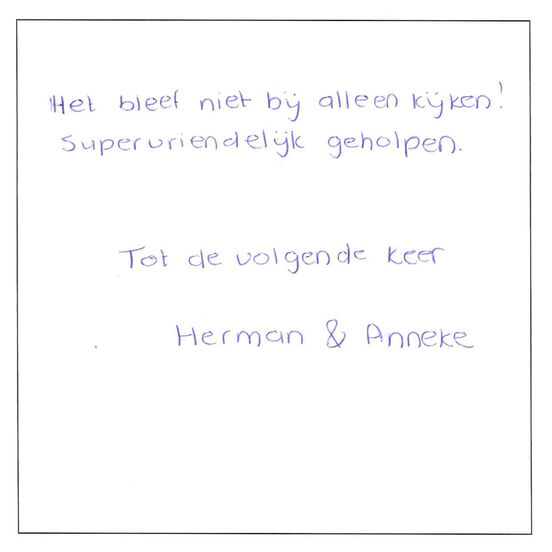 Het bleef niet bij alleen kijken!
Supervriendelijk geholpen.
Tot de volgende keer
Herman & Anneke